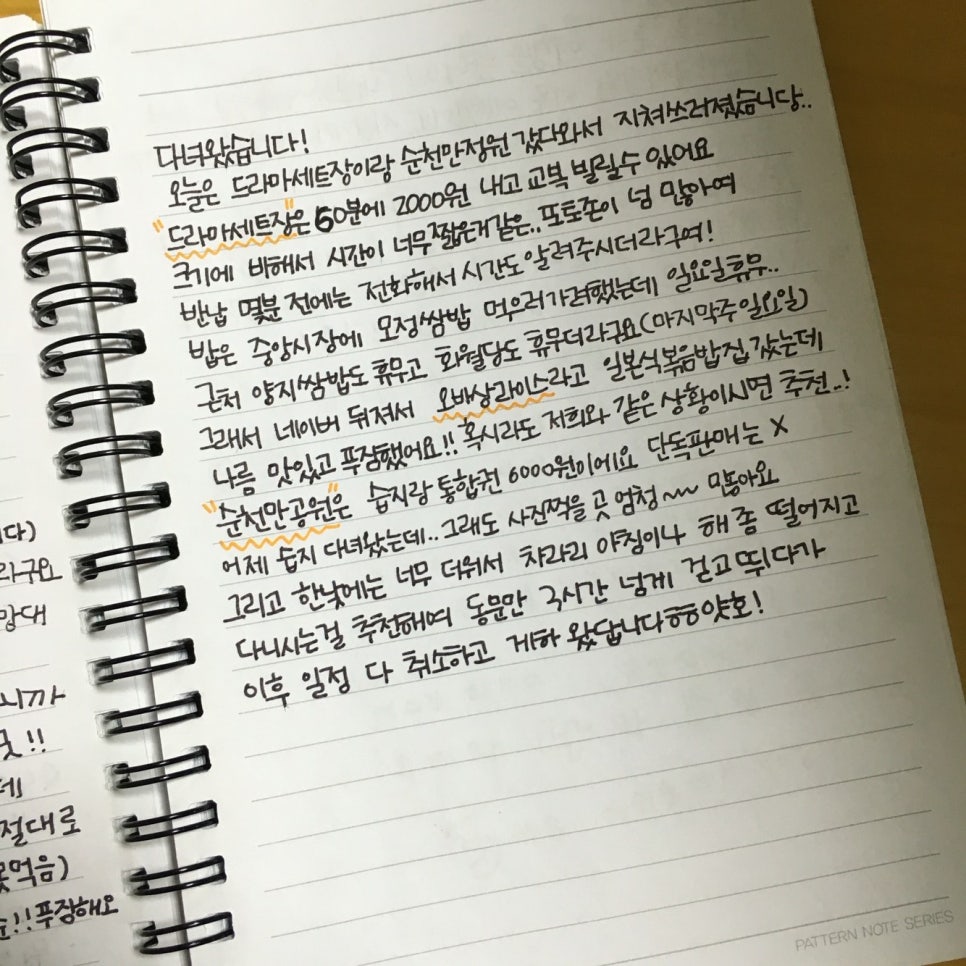 다녀왔습니다!
오늘은 드라마세트장이랑 순천만정원 갔다와서 지쳐쓰러졌습니당..
"드라마세트장"은 60분에 2000원 내고 교복 빌릴수 있어요
크기에 비해서 시간이 너무 짧은거같은.. 포토존이 넘 많아여
반납 몇분 전에는 전화해서 시간도 알려주시더라구여!
밥은 중앙시장에 모정쌈밥 먹으러가려했는데 일요일휴무..
근처 양지쌈밥도 휴무고 화월당도 휴무더라구요(마지막주일요일)
그래서 네이버 뒤져서 오배상라이스라고 일본식볶음밥집 갔는데
나름 맛있고 푸짐했어요!! 혹시라도 저희와 같은 상황이시면 추천..!
"순천만공원"은 습지랑 통합권 6000원이에요 단독판매는 X
어제 습지 다녀왔는데.. 그래도 사진찍을 곳 엄청~~ 많아요
그리고 한낮에는 너무 더워서 차라리 아침이나 해 좀 떨어지고
다니시는걸 추천해여 동문만 3시간 넘게 걷고 뛰다가
이후 일정 다 취소하고 게하 왔답니다ㅎㅎ얏호!
다)
라구요
망대
니까
굿!!
데
절대로
못먹음)
!!푸짐해요
PATTERN NOTE SERIES